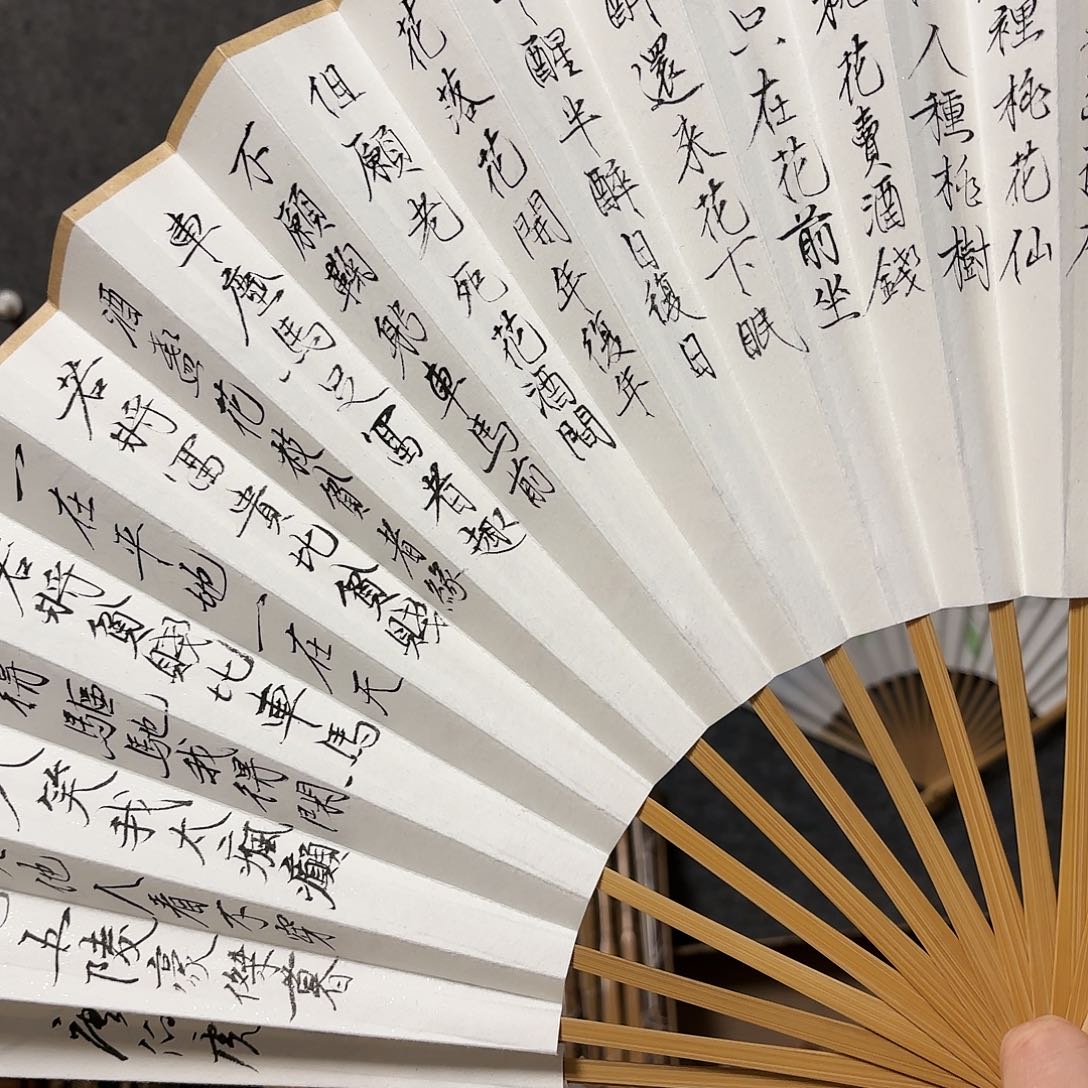 裡桃花仙
人種桃樹
花賣酒錢
只在花前坐
還來花下眠
醒半醉日復日
花落花開年復年
但願老死花酒間
不願鞠躬車馬前
車塵馬足富者趣
酒盞花枝貧者緣
若將富貴比貧賤
一在平地一在天
若將貧賤比車馬
得驅馳我得閑
笑我太瘋癲
他人看不穿
五陵豪傑墓